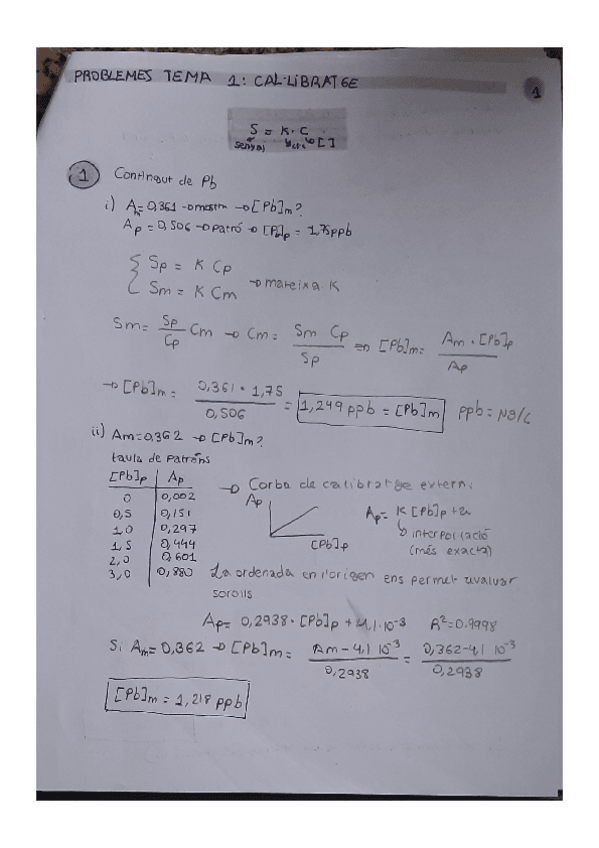 PROBLEMES TEMA 1: CAL·LIBRATGE
1
S = K · C
senyal cte [ ]
1 Contingut de Pb
i) Am=0,361 → mostra → [Pb]m?
Ap = 0,506 → patró → [Pb]p = 1,75ppb
Sp = K Cp
Sm = K Cm → mateixa K
Sm= Sp/Cp Cm → Cm = Sm Cp / Sp ⇒ [Pb]m= Am · [Pb]p / Ap
→ [Pb]m = 0,361 · 1,75 / 0,506 = 1,249 ppb = [Pb]m ppb = µg/L
ii) Am=0,362 → [Pb]m?
taula de patrons
[Pb]p Ap
0 0,002
0,5 0,151
1,0 0,297
1,5 0,444
2,0 0,601
3,0 0,880
→ Corba de calibratge extern:
Ap
[Pb]p
Ap= K [Pb]p +
interpolació
(més exacta)
La ordenada en l'origen ens permet avaluar
sorolls
Ap= 0,2938 · [Pb]p + 4,1·10⁻³ R²=0.9998
Si Am=0,362 → [Pb]m = Am - 4,1 10⁻³ / 0,2938 = 0,362-4,1 10⁻³ / 0,2938
[Pb]m = 1,218 ppb